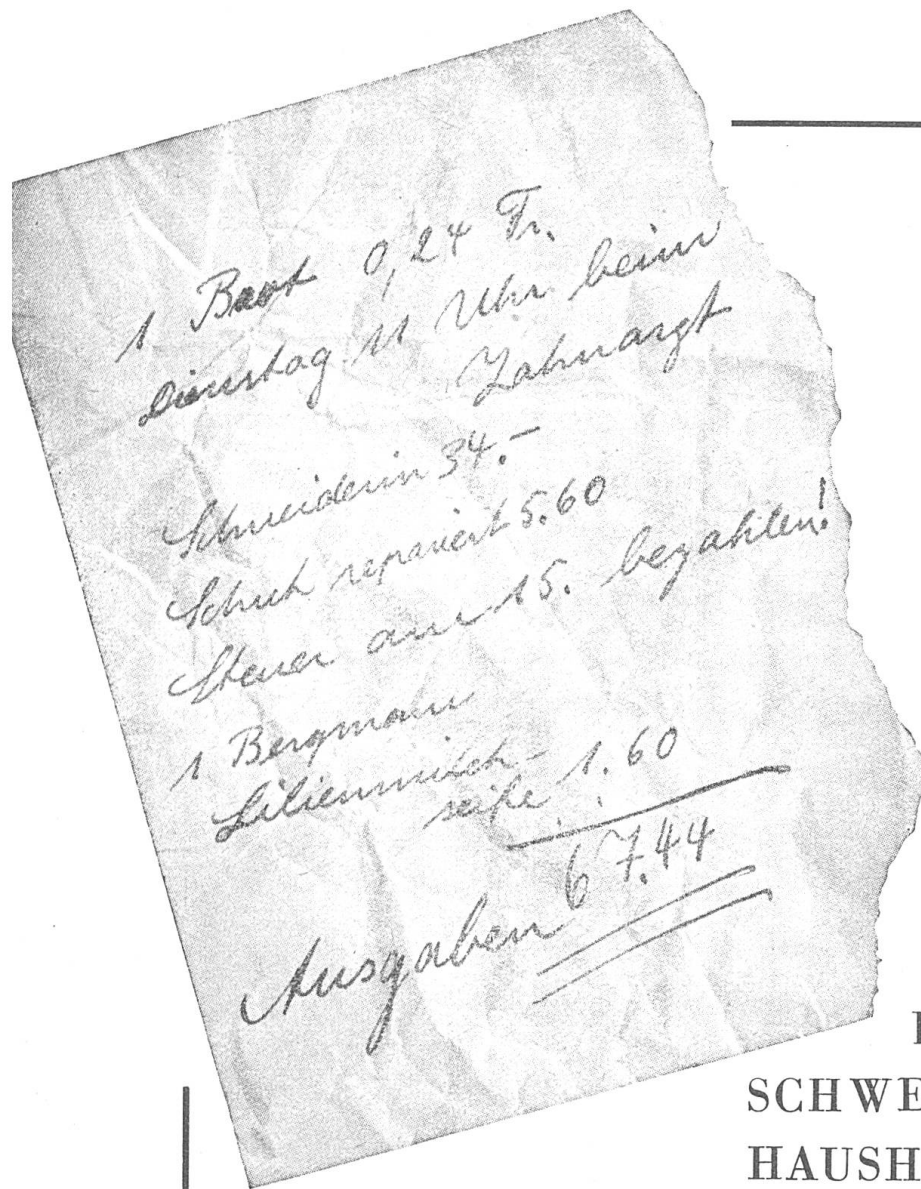 1 Brot 0,24 Fr.
Dienstag 11 Uhr beim
Zahnarzt
Schneiderin 34.-
Schuh repariert 5.60
Steuer am 15. bezahlen!
1 Bergmann
Lilienmilch-
seife 1.60
Ausgaben 67.44
SCHWE
HAUSH